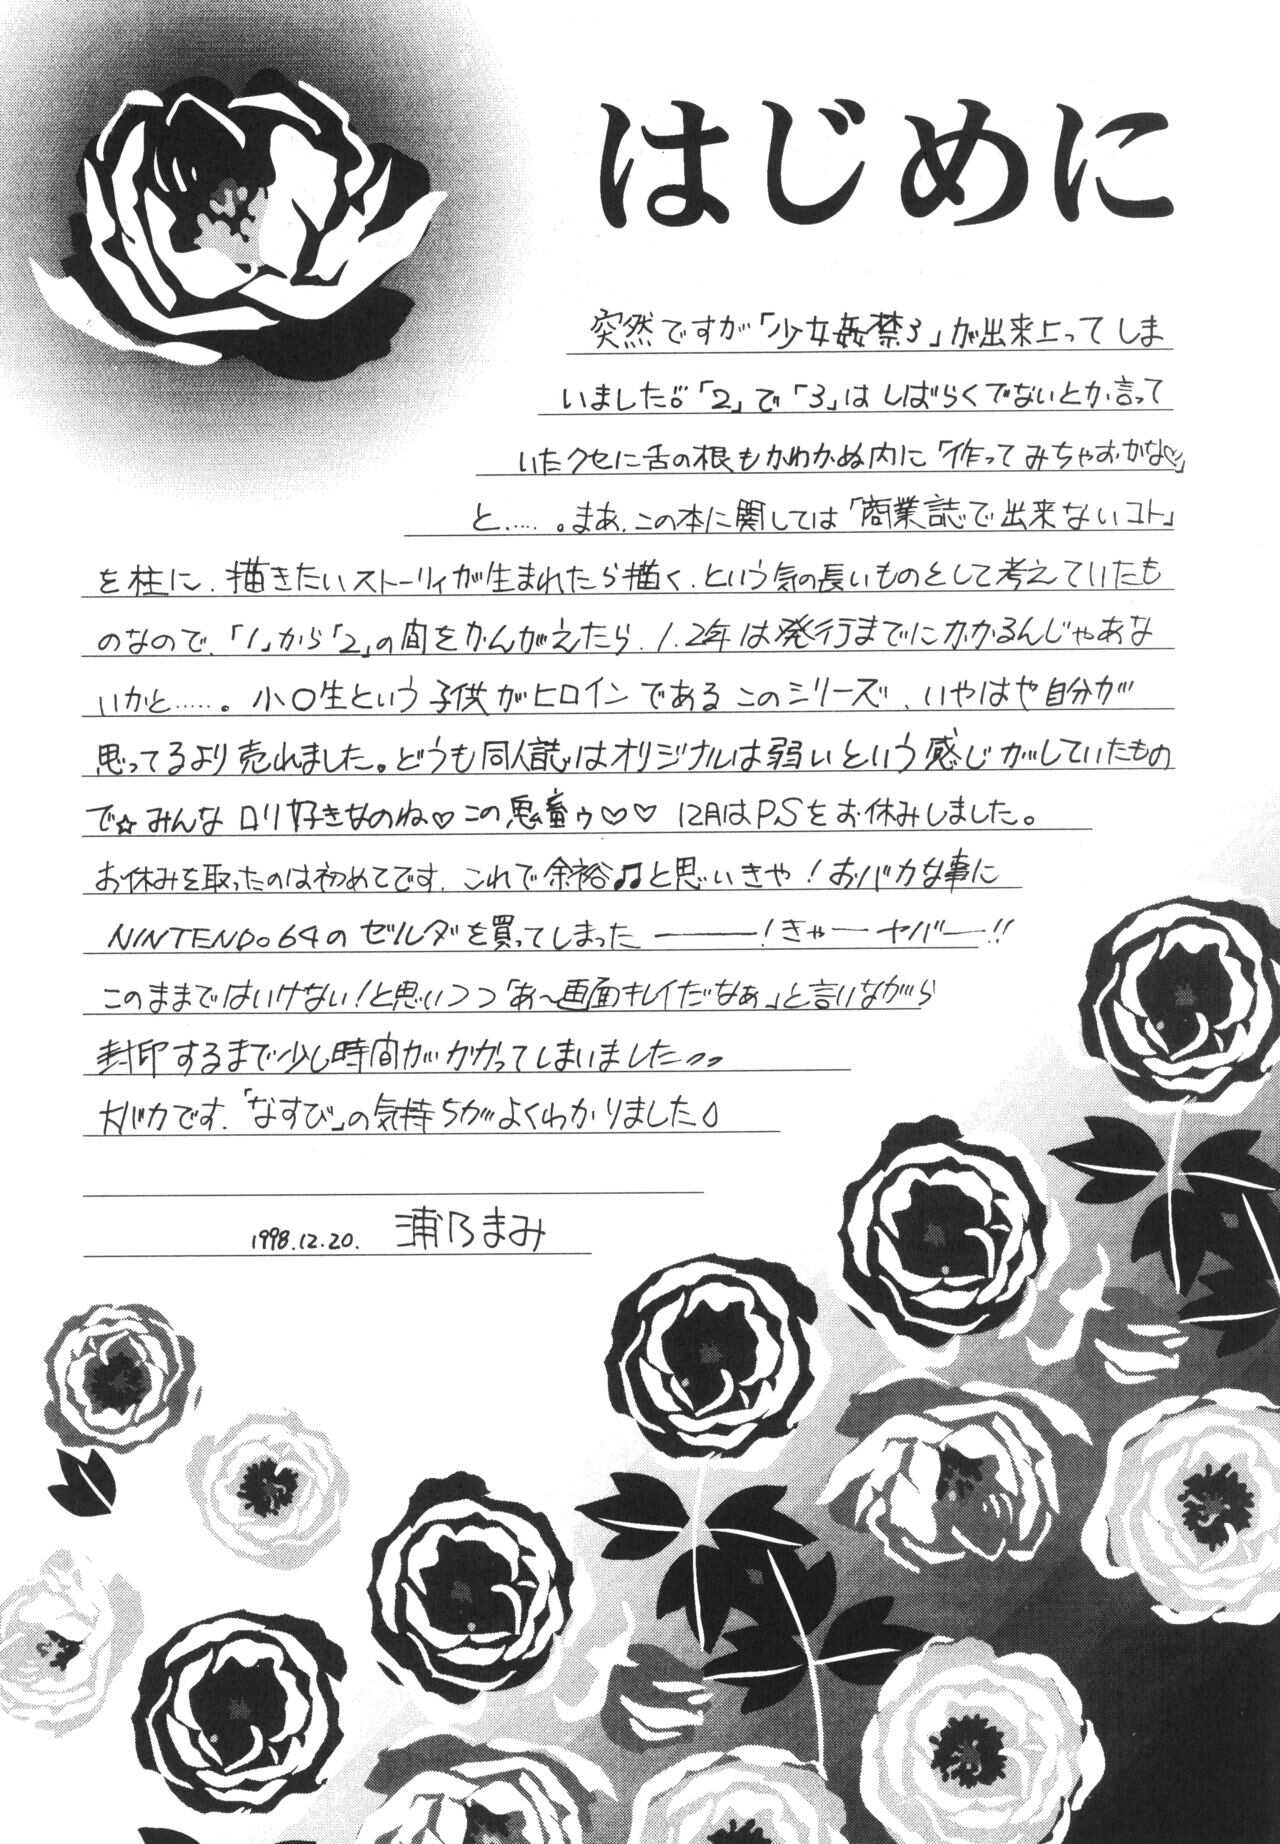 はじめに
突然ですが「少女姦禁3」が出来上ってしま
いました。「2」で「3」はしばらくでないとか言って
いたクセに舌の根もかわかぬ内に「作ってみちゃおかな♡」
と……。まあ、この本に関しては「商業誌で出来ないコト」
を柱に、描きたいストーリィが生まれたら描く、という気の長いものとして考えていたも
のなので、「1」から「2」の間をかんがえたら、1、2年は発行までにかかるんじゃあな
いかと……。小〇生という子供がヒロインであるこのシリーズ、いやはや自分が
思ってるより売れました。どうも同人誌はオリジナルは弱いという感じがしていたもの
で☆みんなロリ好きなのね♡この鬼畜ゥ♡♡ 12月はP.Sをお休みしました。
お休みを取ったのは初めてです。これで余裕♫と思いきや！おバカな事に
NINTENDO64のゼルダを買ってしまった―――！きゃーヤバー!!
このままではいけない！と思いつつ「あ〜画面キレイだなぁ」と言いながら
封印するまで少し時間がかかってしまいました
大バカです。「なすび」の気持ちがよくわかりました
1998.12.20. 浦乃まみ